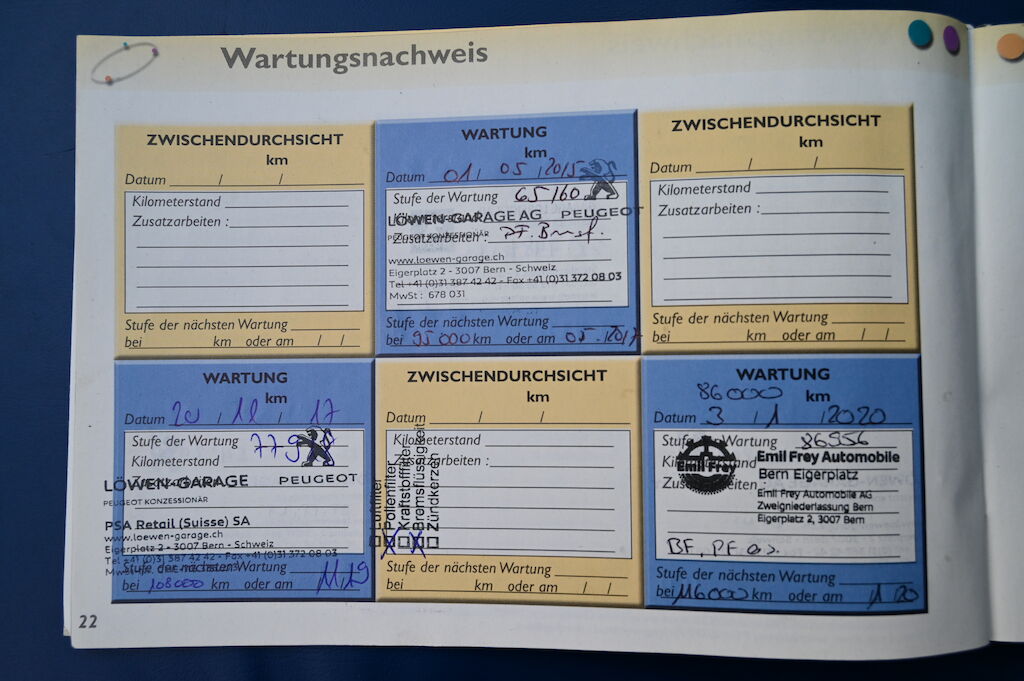 Wartungsnachweis
ZWISCHENDURCHSICHT
km
Datum / /
Kilometerstand
Zusatzarbeiten :
Stufe der nächsten Wartung
bei km oder am / /
WARTUNG
km
Datum 01 / 05 / 2015
Stufe der Wartung 65160
LÖWEN-GARAGE AG PEUGEOT
PEUGEOT KONZESSIONÄR
Zusatzarbeiten :
www.loewen-garage.ch
Eigerplatz 2 - 3007 Bern - Schweiz
Tel +41 (0)31 387 42 42 - Fax +41 (0)31 372 08 03
MwSt : 678 031
Stufe der nächsten Wartung
bei 95000 km oder am 05 / 2017
ZWISCHENDURCHSICHT
km
Datum / /
Kilometerstand
Zusatzarbeiten :
Stufe der nächsten Wartung
bei km oder am / /
WARTUNG
km
Datum 20 / 12 / 17
Stufe der Wartung
Kilometerstand
LÖWEN-GARAGE PEUGEOT
PEUGEOT KONZESSIONÄR
PSA Retail (Suisse) SA
www.loewen-garage.ch
Eigerplatz 2 - 3007 Bern - Schweiz
Tel +41 (0)31 387 42 42 - Fax +41 (0)31 372 08 03
Stufe der nächsten Wartung
bei 108000 km oder am 11/19
ZWISCHENDURCHSICHT
km
Datum / /
Kilometerstand
Zusatzarbeiten :
Luftfilter
Pollenfilter
Kraftstofffilter
Bremsflüssigkeit
Zündkerzen
Stufe der nächsten Wartung
bei km oder am / /
WARTUNG
86000 km
Datum 3 / 1 / 2020
Stufe der Wartung 86956
Kilometerstand
Emil Frey
Emil Frey Automobile
Bern Eigerplatz
Emil Frey Automobile AG
Zweigniederlassung Bern
Eigerplatz 2, 3007 Bern
BF, PF
Stufe der nächsten Wartung
bei 116000 km oder am
22